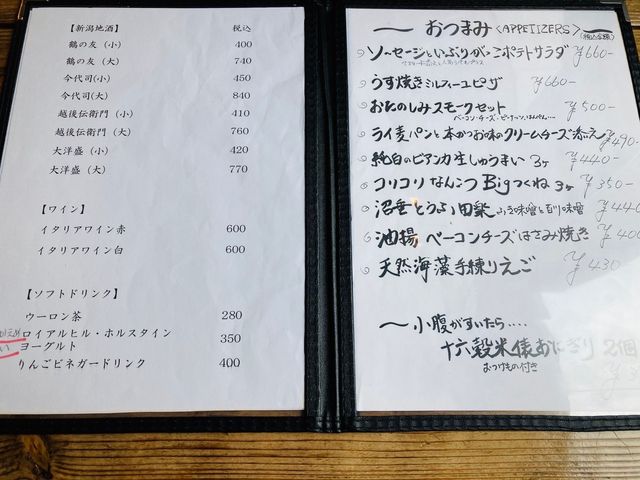 【新潟地酒】 税込
鶴の友(小) 400
鶴の友(大) 740
今代司(小) 450
今代司(大) 840
越後伝衛門(小) 410
越後伝衛門(大) 760
大洋盛(小) 420
大洋盛(大) 770
【ワイン】
イタリアワイン赤 600
イタリアワイン白 600
【ソフトドリンク】
ウーロン茶 280
ロイアルヒル・ホルスタイン
ヨーグルト 350
りんごビネガードリンク 400
〜おつまみ〈APPETIZERS〉
(税込金額)
ソーセージといぶりがっこポテトサラダ ¥660-
うす焼きミルフィーユピザ ¥660-
おたのしみスモークセット ¥500-
ベーコン・チーズ・ピーナッツ、はんぺん…
ライ麦パンと本かつお味のクリームチーズ添え ¥490-
純白のビアンカ生しゅうまい 3ヶ ¥440-
コリコリなんこつBigつくね 3ヶ ¥350-
沼垂とうふ田楽 ふき味噌と石川味噌 ¥440
油揚ベーコンチーズはさみ焼き ¥400
天然海藻手練りえご ¥430
〜小腹がすいたら‥‥
十六穀米俵おにぎり 2個
おつけもの付き